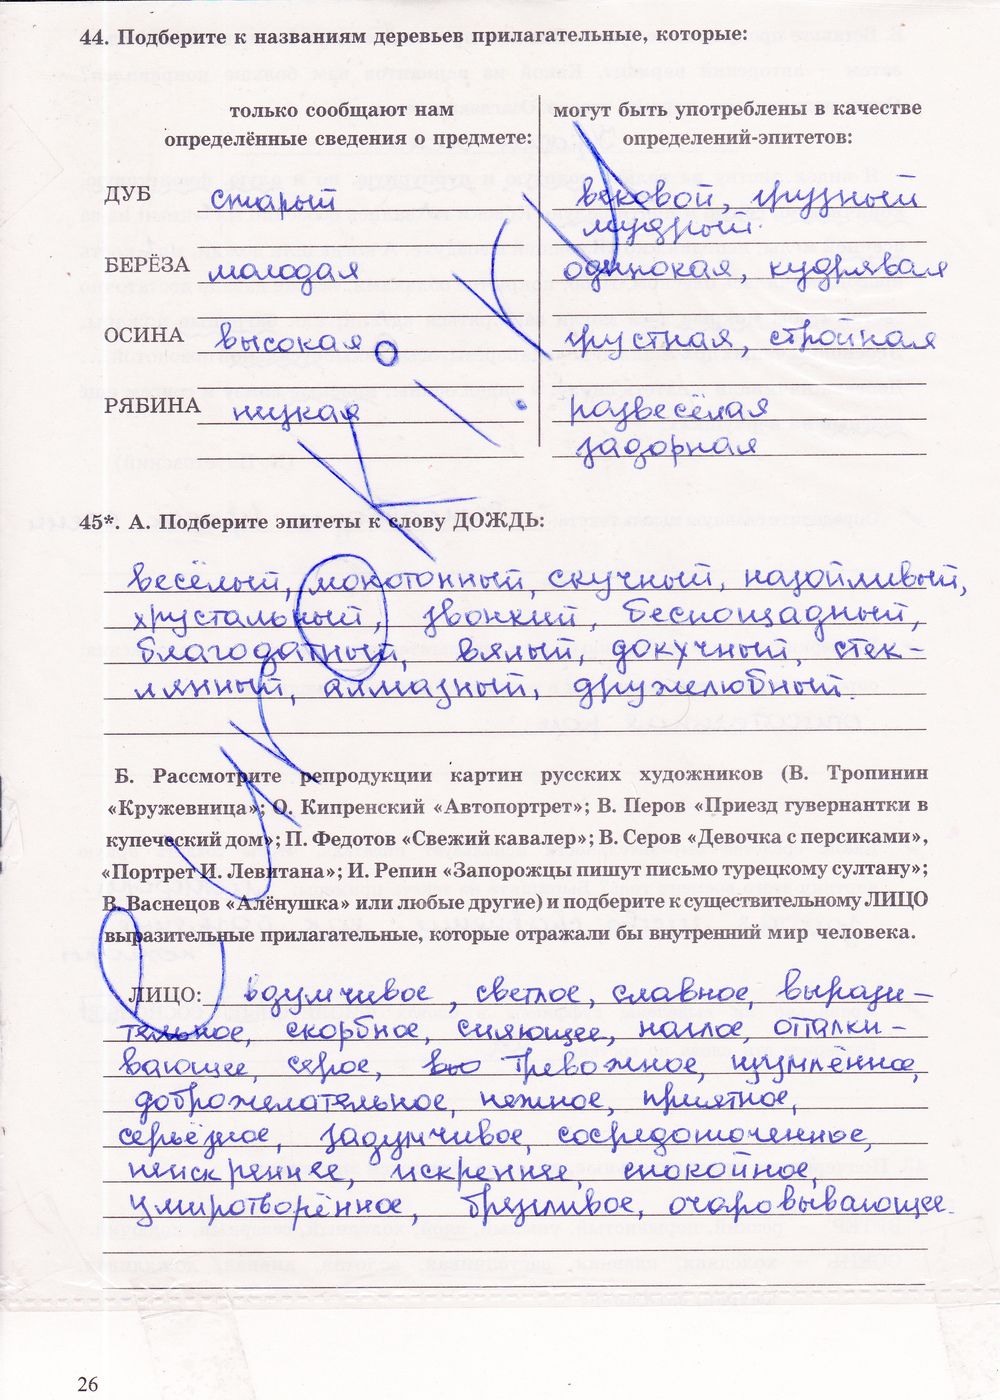 44. Подберите к названиям деревьев прилагательные, которые:
только сообщают нам
определённые сведения о предмете:
могут быть употреблены в качестве
определений-эпитетов:
ДУБ старый вековой, грузный
мудрый.
БЕРЁЗА молодая одинокая, кудрявая
ОСИНА высокая грустная, стройная
РЯБИНА низкая развесёлая
задорная
45*. А. Подберите эпитеты к слову ДОЖДЬ:
весёлый, монотонный, скучный, назойливый,
хрустальный, звонкий, беспощадный,
благодатный, вялый, докучный, стек-
лянный, алмазный, дружелюбный.
Б. Рассмотрите репродукции картин русских художников (В. Тропинин
«Кружевница»; О. Кипренский «Автопортрет»; В. Перов «Приезд гувернантки в
купеческий дом»; П. Федотов «Свежий кавалер»; В. Серов «Девочка с персиками»,
«Портрет И. Левитана»; И. Репин «Запорожцы пишут письмо турецкому султану»;
В. Васнецов «Алёнушка» или любые другие) и подберите к существительному ЛИЦО
выразительные прилагательные, которые отражали бы внутренний мир человека.
ЛИЦО: вдумчивое, светлое, славное, вырази-
тельное, скорбное, сияющее, наглое, отталки-
вающее, серое, тревожное, изумлённое,
доброжелательное, нежное, приятное,
серьёзное, задумчивое, сосредоточенное,
неискреннее, искреннее, спокойное,
умиротворённое, брезгливое, очаровывающее.
26